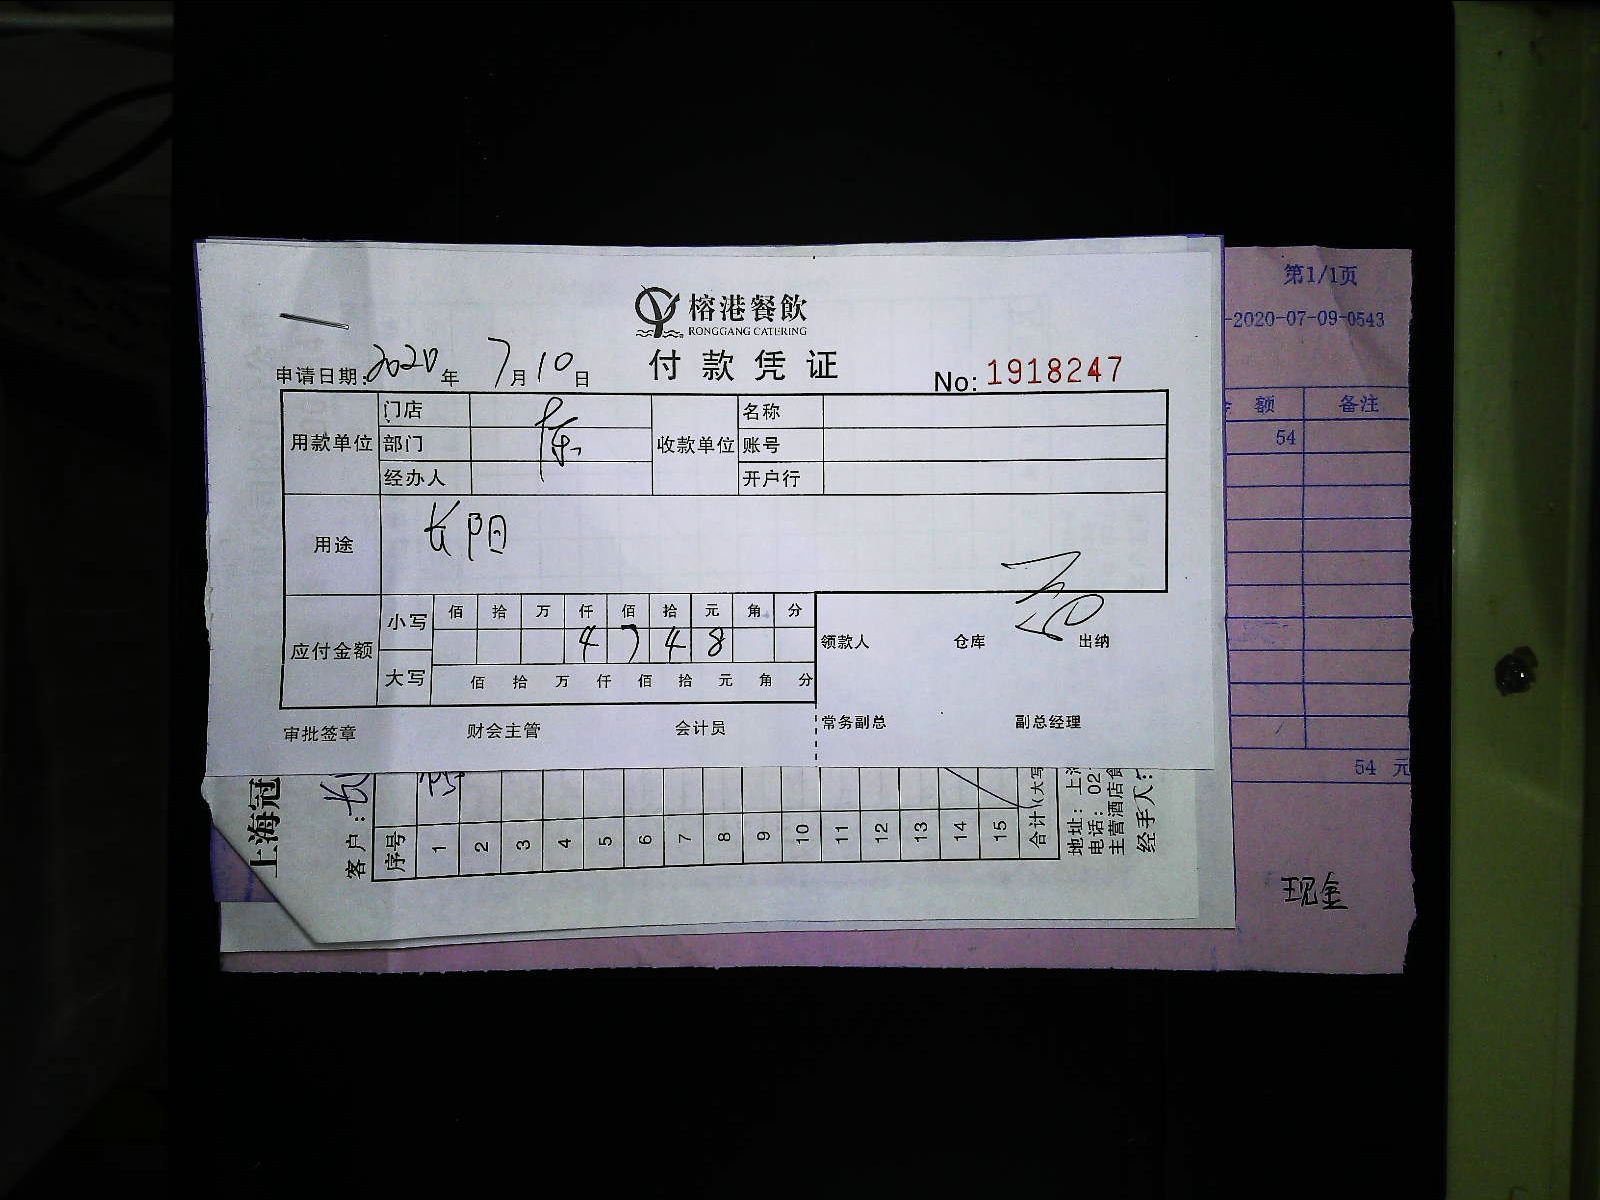 榕港餐飲
RONGGANG CATERING
付款凭证
申请日期: 2020 年 7 月 10 日
No: 1918247
用款单位 门店 陈 收款单位 名称
部门 账号
经办人 开户行
用途 长阳
应付金额 小写 佰 拾 万 仟 佰 拾 元 角 分
4 7 4 8
大写 佰 拾 万 仟 佰 拾 元 角 分
领款人 仓库 出纳
常务副总 副总经理
审批签章 财会主管 会计员
第1/1页
-2020-07-09-0543
额 备注
54
54 元
现金
上海冠
客户: 长阳
序号 1 2 3 4 5 6 7 8 9 10 11 12 13 14 15
合计(大写
地址: 上海
电话: 02
主营酒店食
经手人: